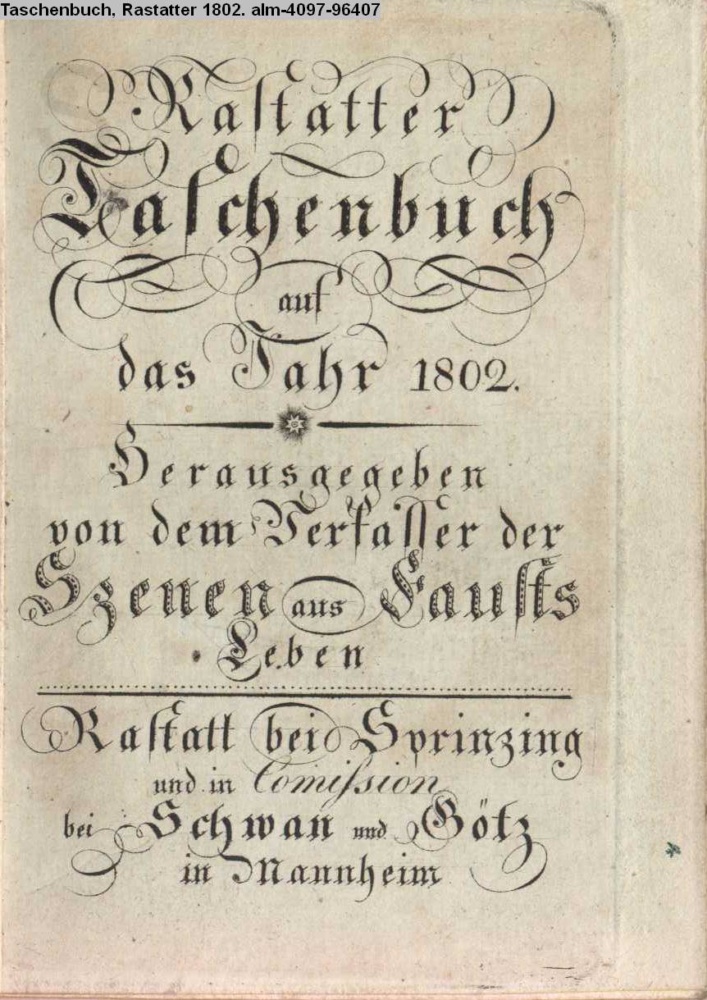 Taschenbuch, Rastatter 1802. alm-4097-96407
Raſtatter
Taſchenbuch
auf
das Jahr 1802.
Herausgegeben
von dem Verfaſſer der
Szenen aus Fauſts
Leben
Raſtatt bei Sprinzing
und in Comiſsion
bei Schwan und Götz
in Mannheim